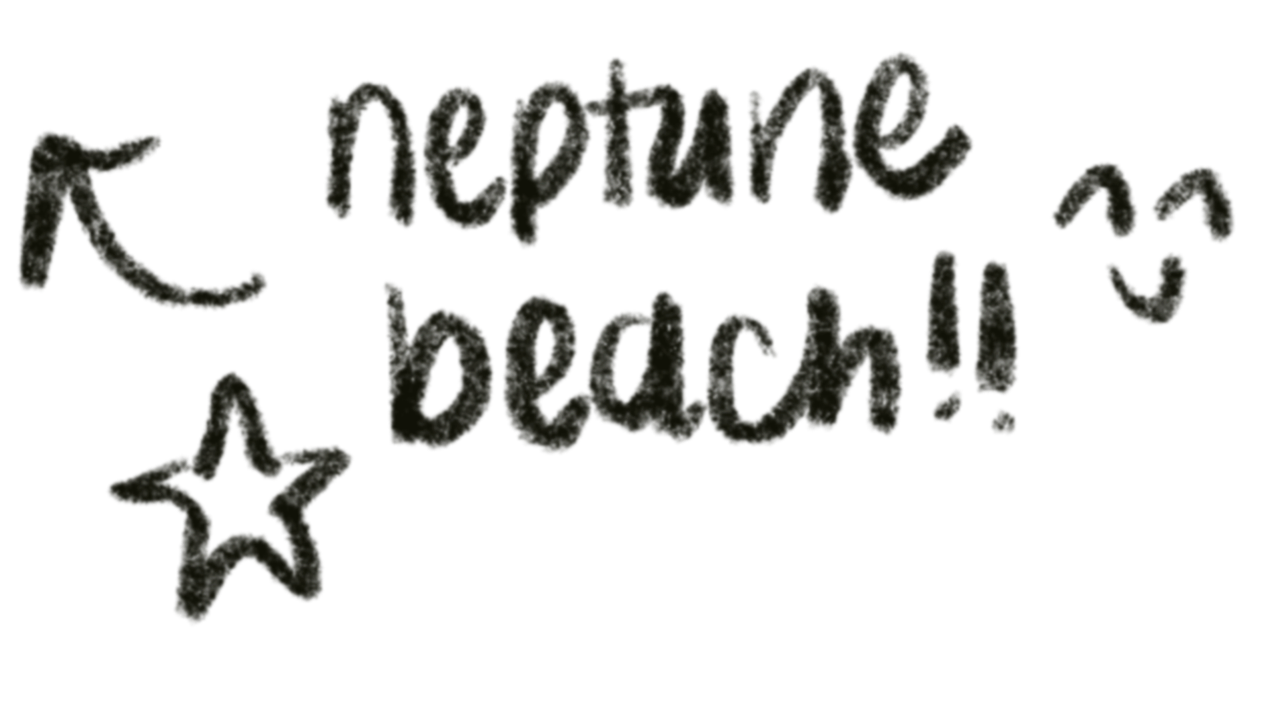 neptune
beach!!